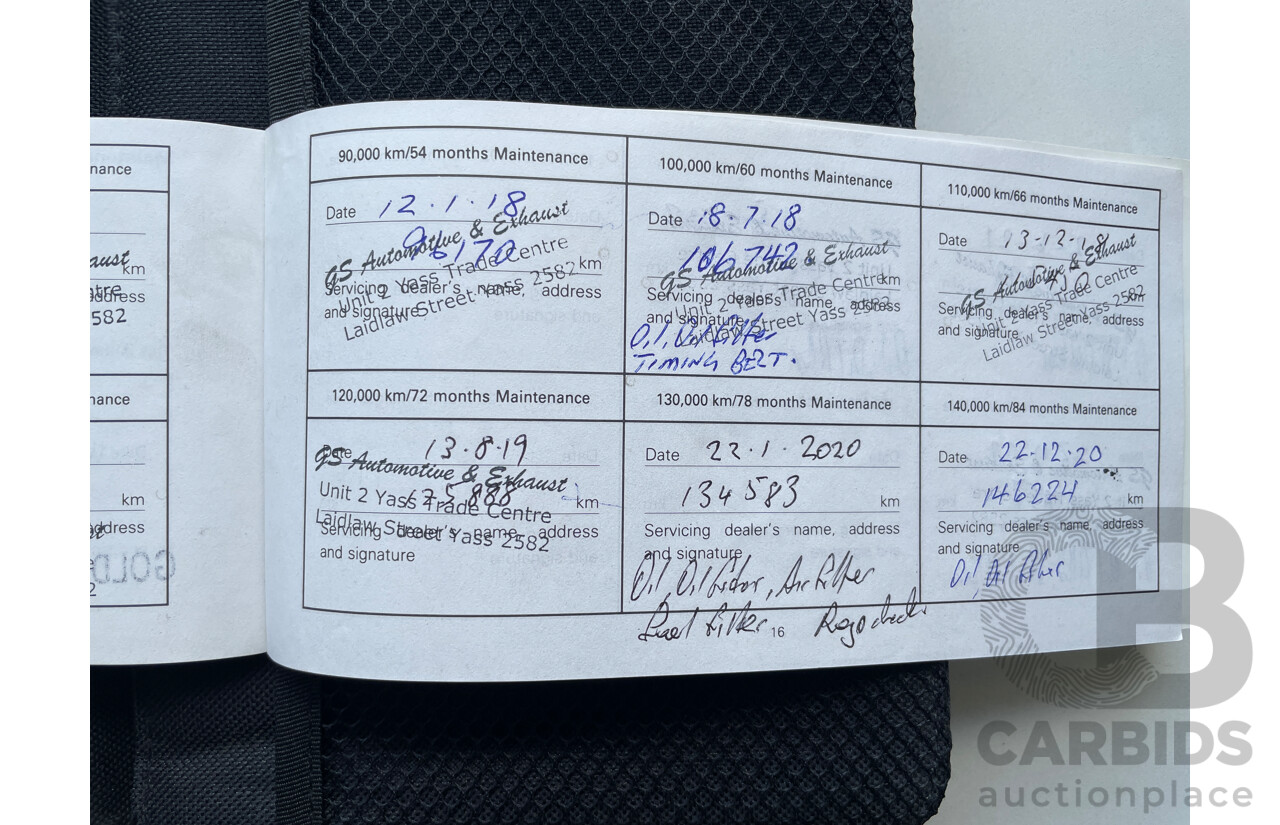 nance
aust
km
address
tre
582
nance
km
address
GOLD
2
90,000 km/54 months Maintenance
Date 12.1.18
96170
km
GS Automotive & Exhaust
Unit 2 Yass Trade Centre
Laidlaw Street Yass 2582
Servicing dealer's name, address
and signature
100,000 km/60 months Maintenance
Date 18.7.18
106742
km
GS Automotive & Exhaust
Unit 2 Yass Trade Centre
Laidlaw Street Yass 2582
Servicing dealer's name, address
and signature
Oil, Oil Filter
TIMING BELT.
110,000 km/66 months Maintenance
Date 13-12-18
km
GS Automotive & Exhaust
Unit 2 Yass Trade Centre
Laidlaw Street Yass 2582
Servicing dealer's name, address
and signature
120,000 km/72 months Maintenance
Date 13.8.19
km
GS Automotive & Exhaust
Unit 2 Yass Trade Centre
Laidlaw Street Yass 2582
Servicing dealer's name, address
and signature
130,000 km/78 months Maintenance
Date 22.1.2020
134583 km
Servicing dealer's name, address
and signature
Oil, Oil Filter, Air Filter
Fuel Filter Rego check
140,000 km/84 months Maintenance
Date 22.12.20
146224 km
Servicing dealer's name, address
and signature
Oil, Oil Filter
16
CB
CARBIDS
auctionplace